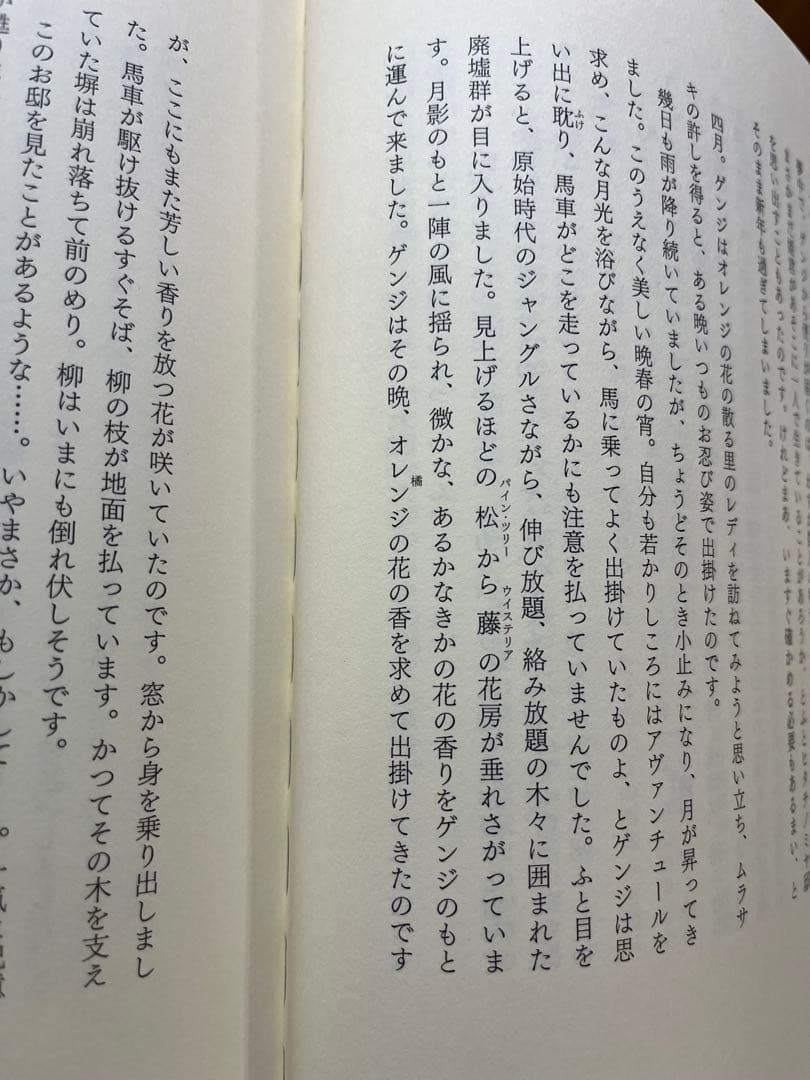 そのまま新年も過ぎてしまいました。
四月。ゲンジはオレンジの花の散る里のレディを訪ねてみようと思い立ち、ムラサ
キの許しを得ると、ある晩いつものお忍び姿で出掛けたのです。
幾日も雨が降り続いていましたが、ちょうどそのとき小止みになり、月が昇ってき
ました。このうえなく美しい晩春の宵。自分も若かりしころにはアヴァンチュールを
求め、こんな月光を浴びながら、馬に乗ってよく出掛けていたものよ、とゲンジは思
い出に耽り、馬車がどこを走っているかにも注意を払っていませんでした。ふと目を
ふけ
上げると、原始時代のジャングルさながら、伸び放題、絡み放題の木々に囲まれた
廃墟群が目に入りました。見上げるほどの松から藤の花房が垂れさがっていま
パイン・ツリー ウイステリア
す。月影のもと一陣の風に揺られ、微かな、あるかなきかの花の香りをゲンジのもと
に運んで来ました。ゲンジはその晩、オレンジの花の香を求めて出掛けてきたのです
橘
が、ここにもまた芳しい香りを放つ花が咲いていたのです。窓から身を乗り出しまし
た。馬車が駆け抜けるすぐそば、柳の枝が地面を払っています。かつてその木を支え
ていた塀は崩れ落ちて前のめり。柳はいまにも倒れ伏しそうです。
このお邸を見たことがあるような……。いやまさか、もしかして